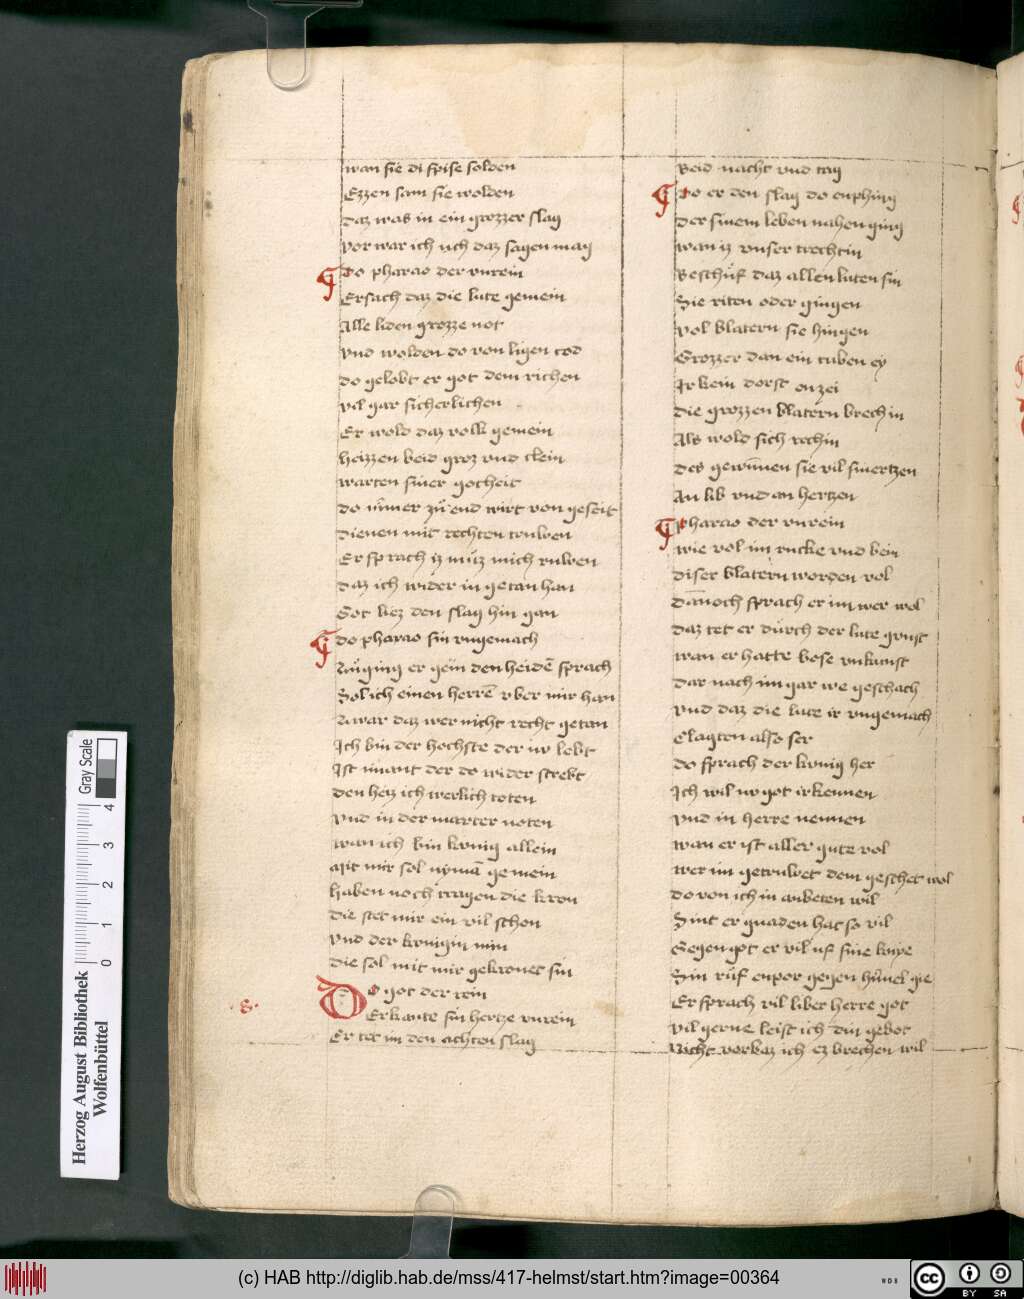 wan sie di spise solden
Ezzen sam sie wolden
daz was in ein grozzer slag
vor war ich uch daz sagen mag
Do pharao der vnrein
Ersach daz die lute gemein
Alle liden grozze not
vnd wolden do von ligen tod
do gelobt er got dem richen
vil gar sicherlichen
Er wold daz volk gemein
heizzen beid groz vnd clein
warten siner gotheit
do nimer zu end wirt von geseit
dienen mit rechten truwen
Er sprach iz muz mich ruwen
daz ich wider in getan han
Got liez den slag hin gan
do pharao sin vngemach
zuging er gein den heiden sprach
Sol ich einen herren vber mir han
zwar daz wer nicht recht getan
Ich bin der hochste der nv lebt
Ist imant der do wider strebt
den heiz ich werlich toten
vnd in der marter noten
wan ich bin kvnig allein
Mit mir sol nyman gemein
haben noch tragen die kron
die stet mir ein vil schon
vnd der kvnigin min
die sol mit mir gekronet sin
.8. Do got der rein
Erkante sin hertze vnrein
Er tet im den achten slag
Beid nacht vnd tag
Do er den slag do enphing
der sinem leben nahen ging
wan iz vnser trechtin
Beschuf daz allen luten sin
Sie riten oder gingen
vol blatern sie hingen
Grozzer dan ein tuben ey
Ir kein dorst enzei
die grozzen blatern brechin
Als wold sich rechin
des gewunnen sie vil smertzen
An lib vnd an hertzen
Pharao der vnrein
wie vol im rucke vnd bein
diser blatern worden vol
dannoch sprach er im wer wol
daz tet er durch der lute gunst
wan er hatte bose vnkunst
dar nach im gar we geschach
vnd daz die lute ir vngemach
Clagten also ser
do sprach der kvnig her
Ich wil nv got irkennen
vnd in herre nennen
wan er ist aller gute vol
wer im getruwet dem geschet wol
do von ich in anbeten wil
Sint er gnaden hat so vil
Gegen got er vil uf sine knye
Sin ruf enpor gegen himel gie
Er sprach vil liber herre got
vil gerne leist ich din gebot
Nicht vorbaz ich ez brechen wil
Gray Scale
0 1 2 3 4
Herzog August Bibliothek
Wolfenbüttel
(c) HAB http://diglib.hab.de/mss/417-helmst/start.htm?image=00364
WDB
cc BY SA